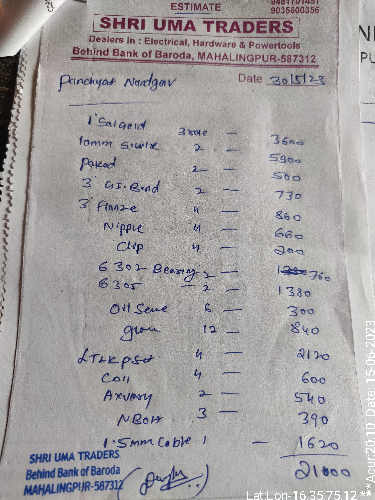 ESTIMATE
9481701451
9035600356
SHRI UMA TRADERS
Dealers in : Electrical, Hardware & Powertools
Behind Bank of Baroda, MAHALINGPUR-587312
Panchyat Nandgav Date 30/5/23
3 role - 3600
10mm 2 - 5900
2 - 500
3" G.I. Bend 2 - 730
3" Flanze 4 - 860
Nipple 4 - 660
Clip 4 - 200
6302 Bearing 2 - 760
6305 - 2 - 1380
Oil Seve 6 - 300
12 - 840
4 - 2120
Coil 4 - 600
Axuary 2 - 540
N Bolt 3 - 390
1.5mm Cable 1 - 1620
21000
SHRI UMA TRADERS
Behind Bank of Baroda
MAHALINGPUR-587312
Lat Lon-16.35;75.12 **Acur:20.10 Date, 15-06-2023